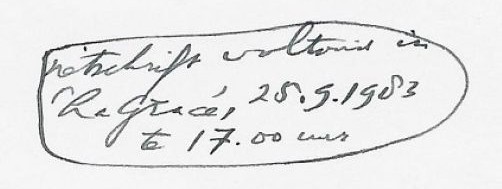 netschrift voltooid in
La Gracé, 28.9.1983
te 17.00 uur